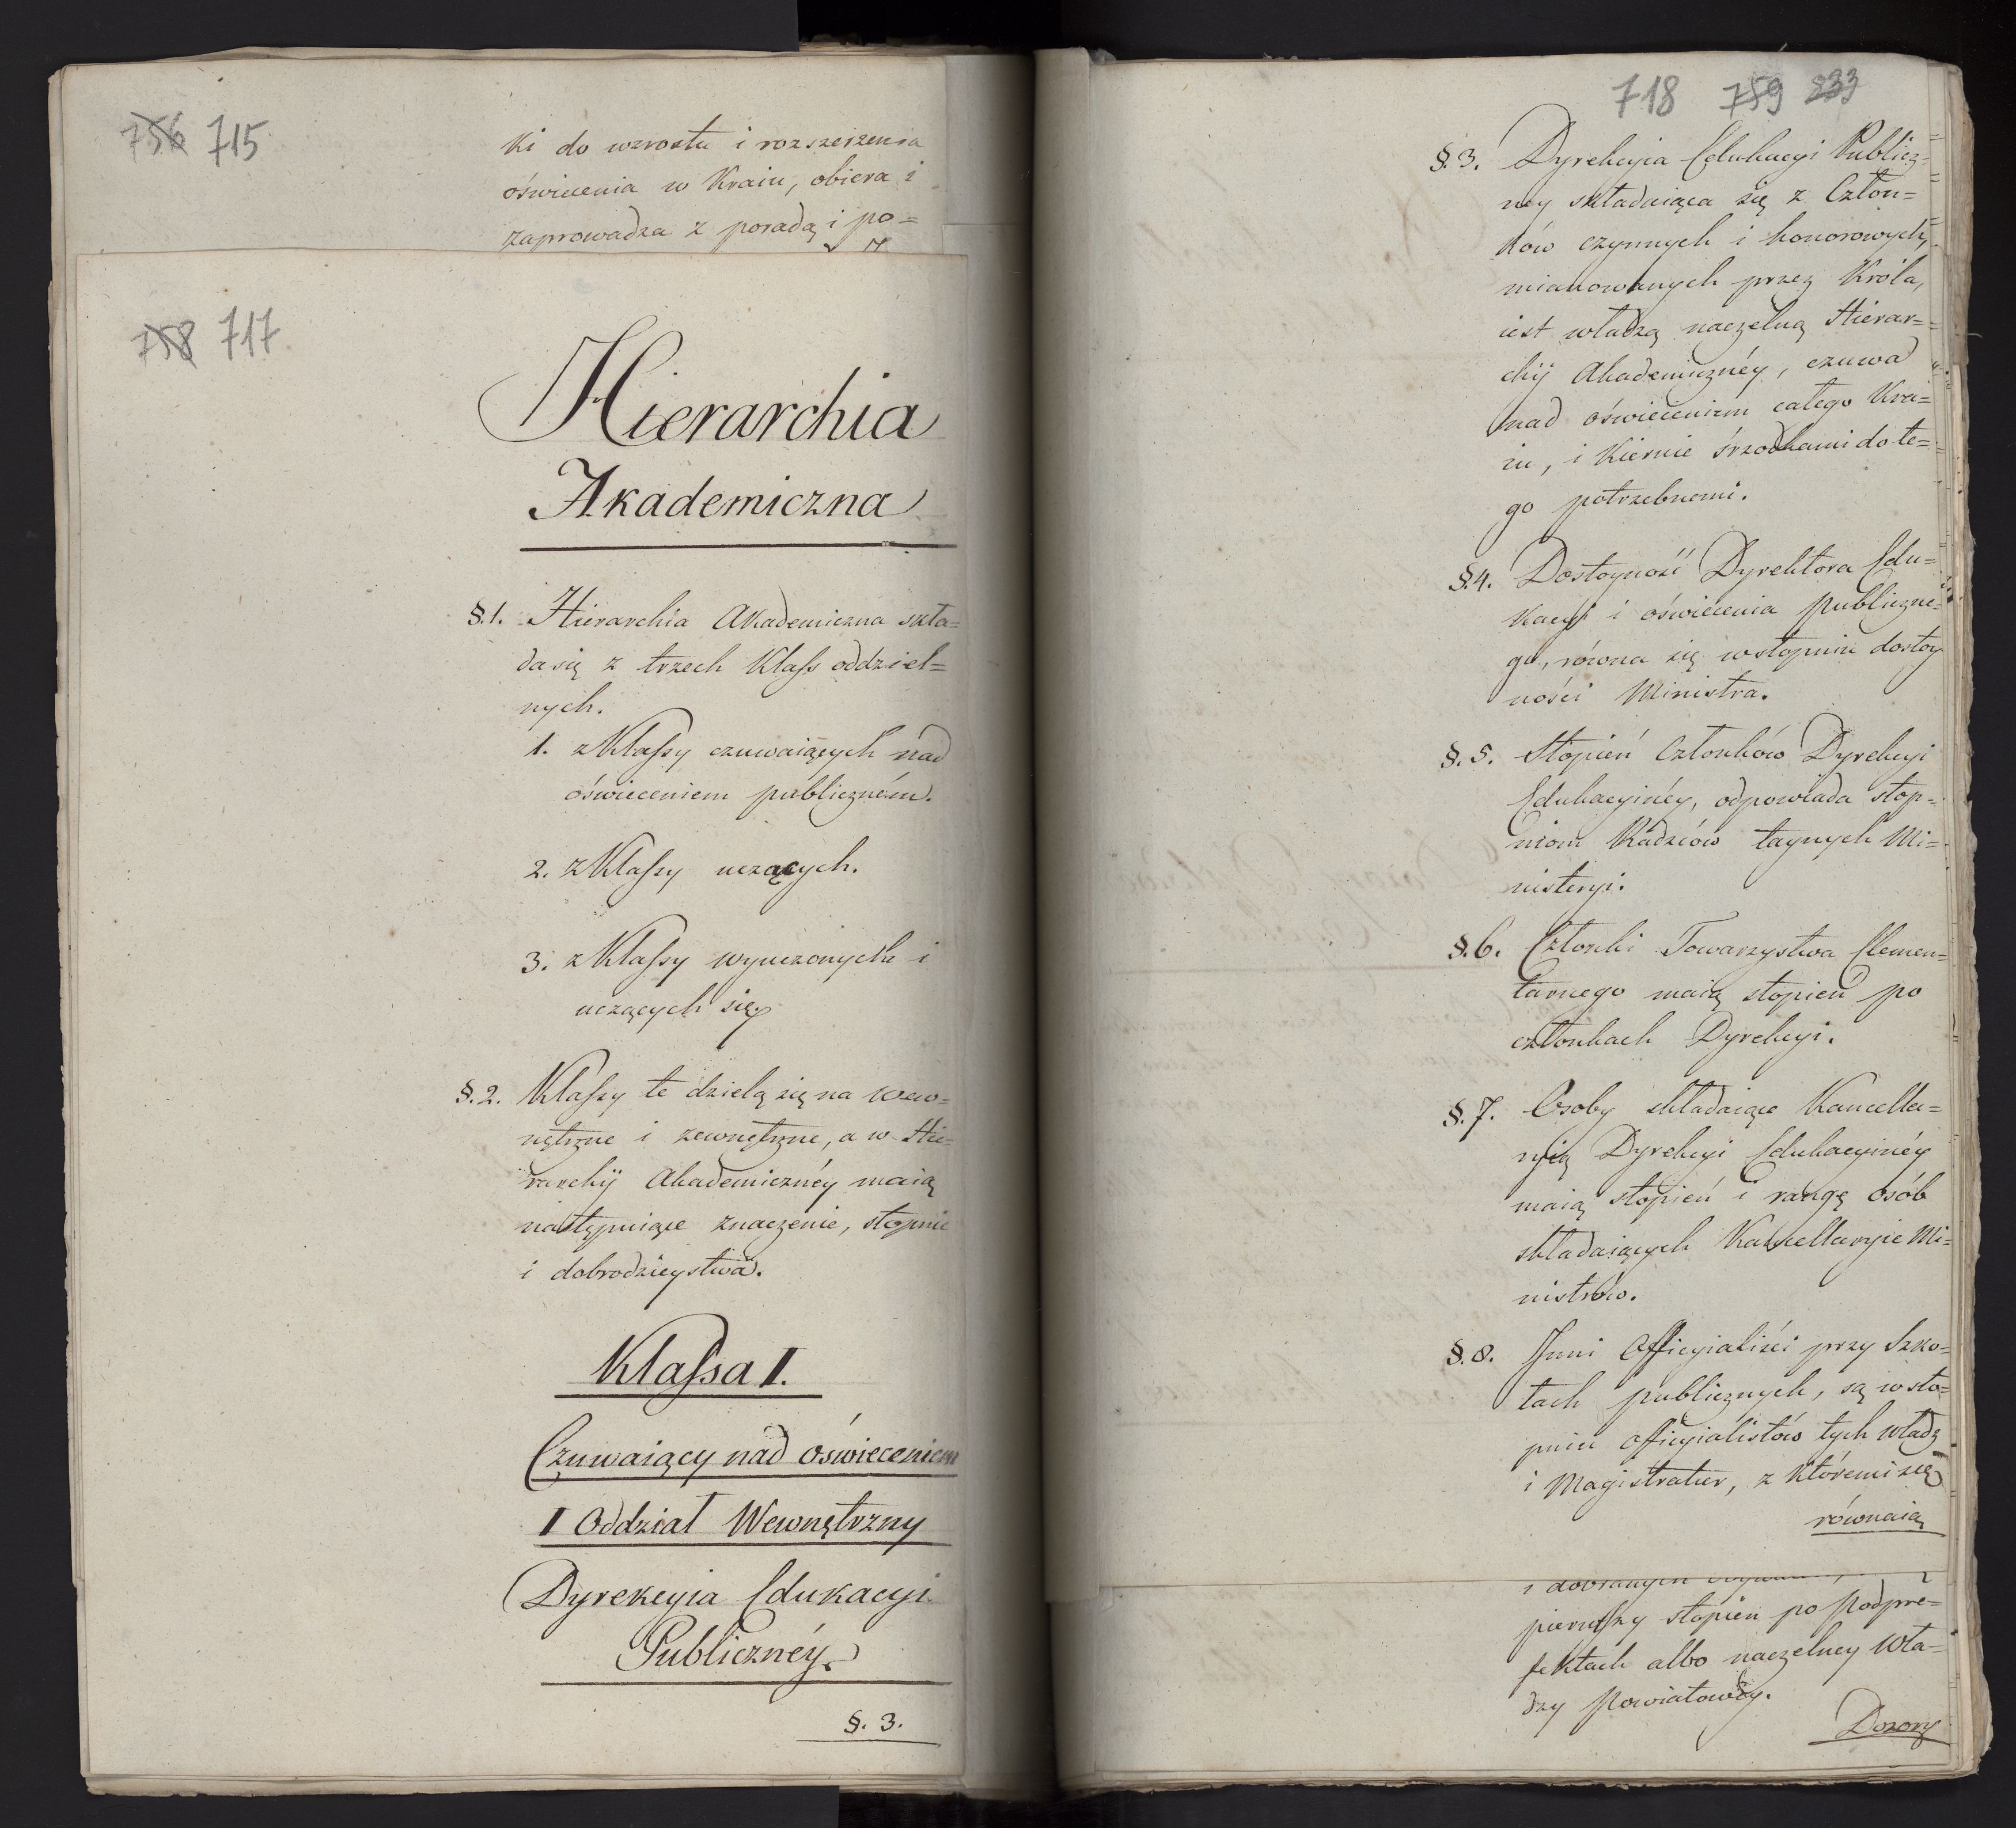 756 715
ki do wzrostu i rozszerzenia
oświecenia w Kraiu, obiera i
zaprowadza z poradą i po=
758 717
Hierarchia
Akademiczna
§.1. Hierarchia Akademiczna skła=
da się z trzech Klass oddziel=
nych.
1. z Klassy czuwaiących nad
oświeceniem publiczném.
2. z Klassy uczących.
3. z Klassy wyuczonych i
uczących się.
§.2. Klassy te dzielą się na wew=
nętrzne i zewnętrzne, a w Hie=
rarchij Akademicznéy maią
następuiące znaczenie, stopnie
i dobrodzieystwa.
Klassa I.
Czuwaiący nad oświeceniem
I Oddział Wewnętrzny
Dyrekcyia Edukacyi
Publicznéy.
§. 3.
718 759 833
§.3. Dyrekcyia Edukacyi Publicz=
ney składaiąca się z Człon=
ków czynnych i honorowych,
mianowanych przez Króla,
iest władzą naczelną Hierar=
chij Akademicznéy, czuwa
nad oświeceniem całego Kra=
iu, i Kieruie śrzodkami do te=
go potrzebnemi.
§.4. Dostoyność Dyrektora Edu=
kacyi i oświecenia publiczne=
go, równa się w stopniu dostoy
ności Ministra.
§.5. Stopień Członków Dyrekcyi
Edukacyinéy, odpowiada stop=
niom Radzców taynych Mi=
nisteryi.
§.6. Członki Towarzystwa Elemen=
tarnego maią stopień po
członkach Dyrekcyi.
§.7. Osoby składaiące Kancella=
ryią Dyrekcyi Edukacyinéy
maią stopień i rangę osób
składaiących Kancellaryie Mi=
nistrów.
§.8. Inni Officyialiści przy Szko=
łach publicznych, są w sto=
pniu officyialistów tych władz
i Magistratur, z któremi się
równaią
i dobranych
pierwszy stopien po Podpre=
fektach albo naczelney Wła=
dzy Powiatowéy.
Dozory